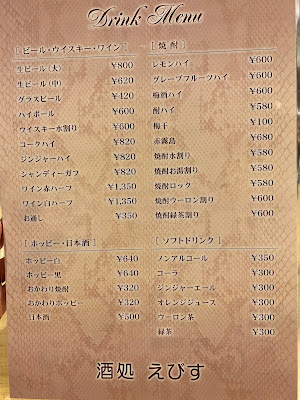 Drink Menu
[ ビール・ウイスキー・ワイン ]
生ビール(大) ¥800
生ビール(中) ¥620
グラスビール ¥420
ハイボール ¥600
ウイスキー水割り ¥600
コークハイ ¥820
ジンジャーハイ ¥820
シャンディーガフ ¥820
ワイン赤ハーフ ¥1,350
ワイン白ハーフ ¥1,350
お通し ¥350
[ 焼酎 ]
レモンハイ ¥600
グレープフルーツハイ ¥600
梅酒ハイ ¥600
酎ハイ ¥580
梅干 ¥100
赤霧島 ¥680
焼酎水割り ¥580
焼酎お湯割り ¥580
焼酎ロック ¥580
焼酎ウーロン割り ¥600
焼酎緑茶割り ¥600
[ ホッピー・日本酒 ]
ホッピー白 ¥640
ホッピー黒 ¥640
おかわり焼酎 ¥320
おかわりホッピー ¥320
日本酒 ¥500
[ ソフトドリンク ]
ノンアルコール ¥350
コーラ ¥300
ジンジャーエール ¥300
オレンジジュース ¥300
ウーロン茶 ¥300
緑茶 ¥300
酒処 えびす